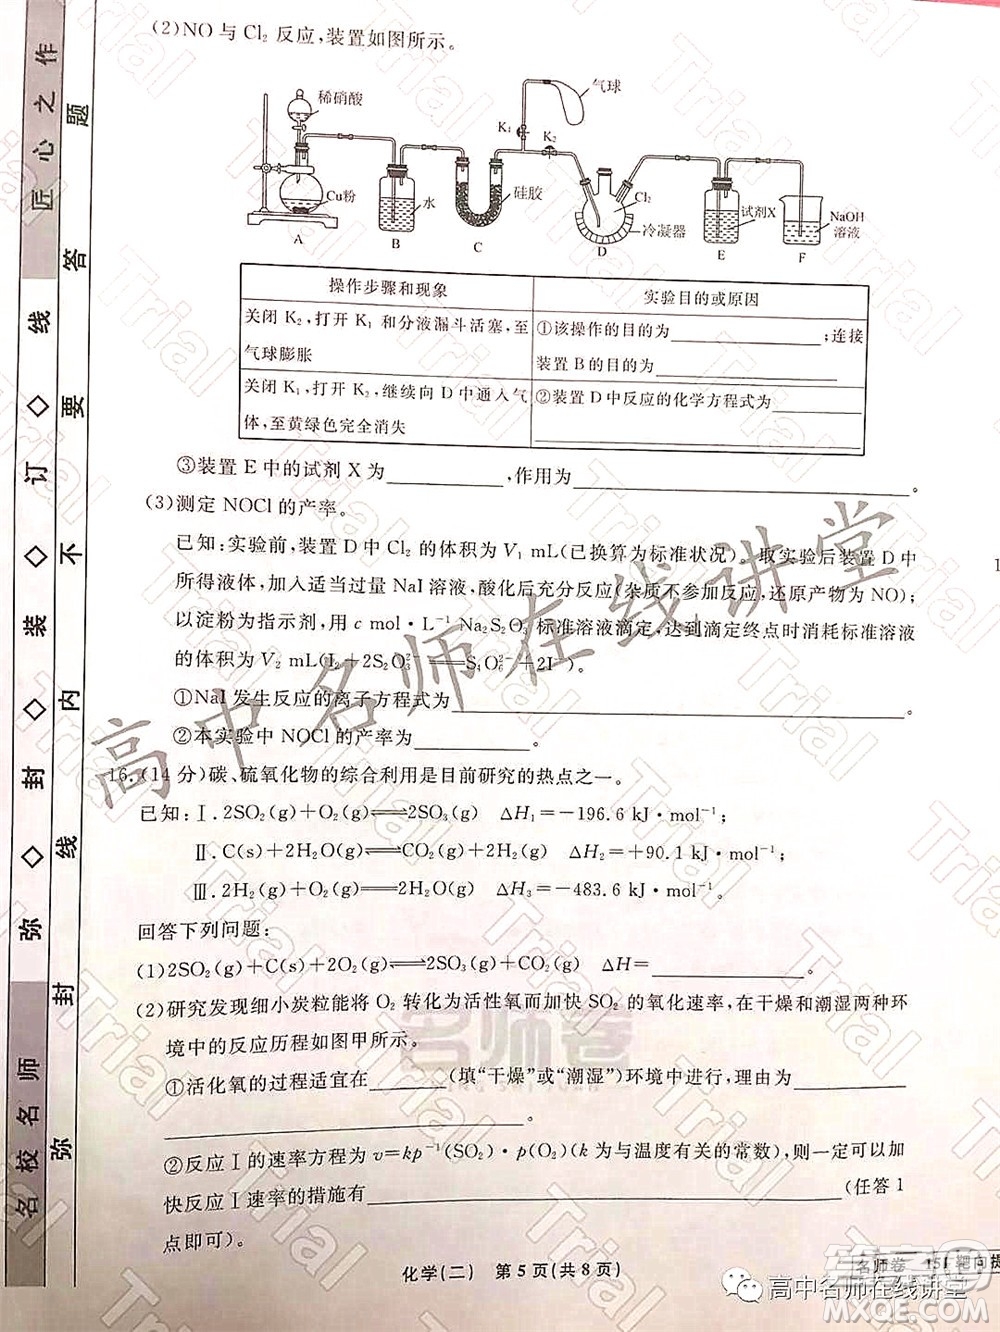 (2)NO 与 Cl₂ 反应,装置如图所示。
稀硝酸
Cu粉
A
水
B
硅胶
C
K₁
K₂
气球
Cl₂
冷凝器
D
试剂X
E
NaOH
溶液
F
操作步骤和现象
实验目的或原因
关闭 K₂,打开 K₁ 和分液漏斗活塞,至
气球膨胀
①该操作的目的为________;连接
装置 B 的目的为________
关闭 K₁,打开 K₂,继续向 D 中通入气
体,至黄绿色完全消失
②装置 D 中反应的化学方程式为________
③装置 E 中的试剂 X 为________,作用为________。
(3)测定 NOCl 的产率。
已知:实验前,装置 D 中 Cl₂ 的体积为 V₁ mL(已换算为标准状况)。取实验后装置 D 中
所得液体,加适当过量 NaI 溶液,酸化后充分反应(杂质不参加反应,还原产物为 NO);
以淀粉为指示剂,用 c mol·L⁻¹ Na₂S₂O₃ 标准溶液滴定,达到滴定终点时消耗标准溶液
的体积为 V₂ mL(I₂+2S₂O₃²⁻══S₄O₆²⁻+2I⁻)。
①NaI 发生反应的离子方程式为________
②本实验中 NOCl 的产率为________。
16.(14 分)碳、硫氧化物的综合利用是目前研究的热点之一。
已知:Ⅰ.2SO₂(g)+O₂(g)⇌2SO₃(g) ΔH₁=−196.6 kJ·mol⁻¹;
Ⅱ.C(s)+2H₂O(g)⇌CO₂(g)+2H₂(g) ΔH₂=+90.1 kJ·mol⁻¹;
Ⅲ.2H₂(g)+O₂(g)⇌2H₂O(g) ΔH₃=−483.6 kJ·mol⁻¹。
回答下列问题:
(1)2SO₂(g)+C(s)+2O₂(g)⇌2SO₃(g)+CO₂(g) ΔH=________。
(2)研究发现细小炭粒能将 O₂ 转化为活性氧而加快 SO₂ 的氧化速率,在干燥和潮湿两种环
境中的反应历程如图甲所示。
①活化氧的过程适宜在________(填“干燥”或“潮湿”)环境中进行,理由为________
________。
②反应Ⅰ的速率方程为 v=kp⁻¹(SO₂)·p(O₂)(k 为与温度有关的常数),则一定可以加
快反应Ⅰ速率的措施有________(任答 1
点即可)。
化学(二) 第 5 页(共 8 页)
名师卷
151 靶向提
匠心之作
名校名师
弥◇封◇装◇订◇线
弥封线内不要答题
高中名师在线讲堂
名师卷
高中名师在线讲堂
MXQE.COM
Trial